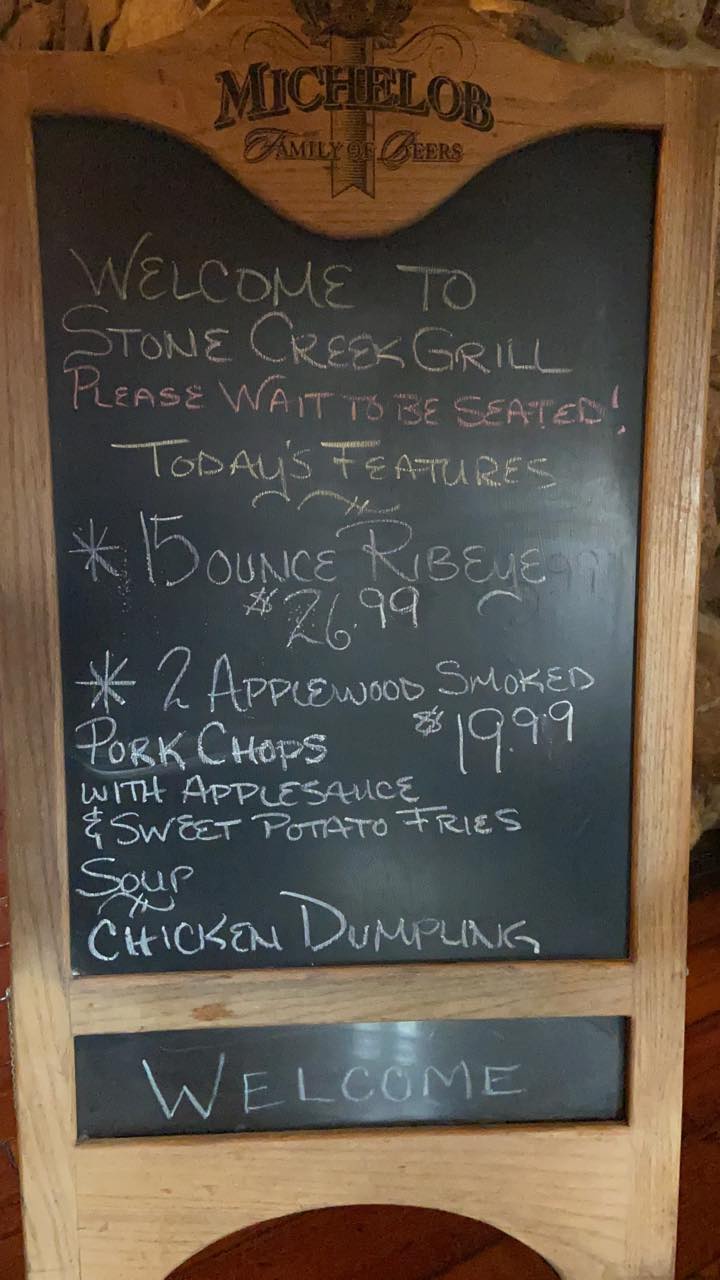 MICHELOB
FAMILY OF BEERS
WELCOME TO
STONE CREEK GRILL
PLEASE WAIT TO BE SEATED!
TODAY'S FEATURES
* 15 OUNCE RIBEYE
$26.99
* 2 APPLEWOOD SMOKED
PORK CHOPS $19.99
WITH APPLESAUCE
& SWEET POTATO FRIES
SOUP
CHICKEN DUMPLING
WELCOME